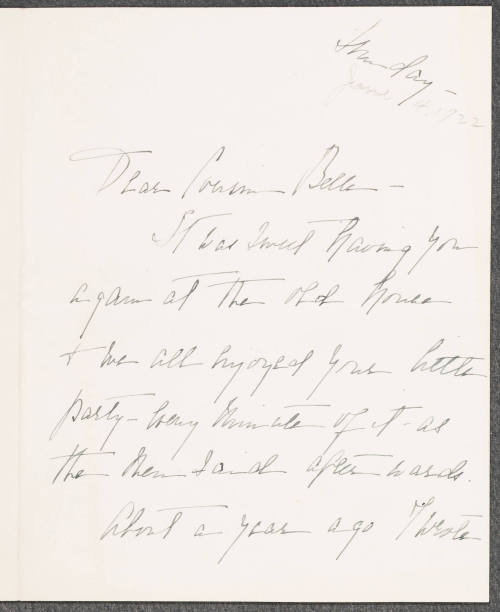 Sunday -
June 4, 1922
Dear Cousin Bella -
It was sweet having you
again at the old house
& we all enjoyed your little
party - every minute of it - as
the men said afterwards.
About a year ago I wrote